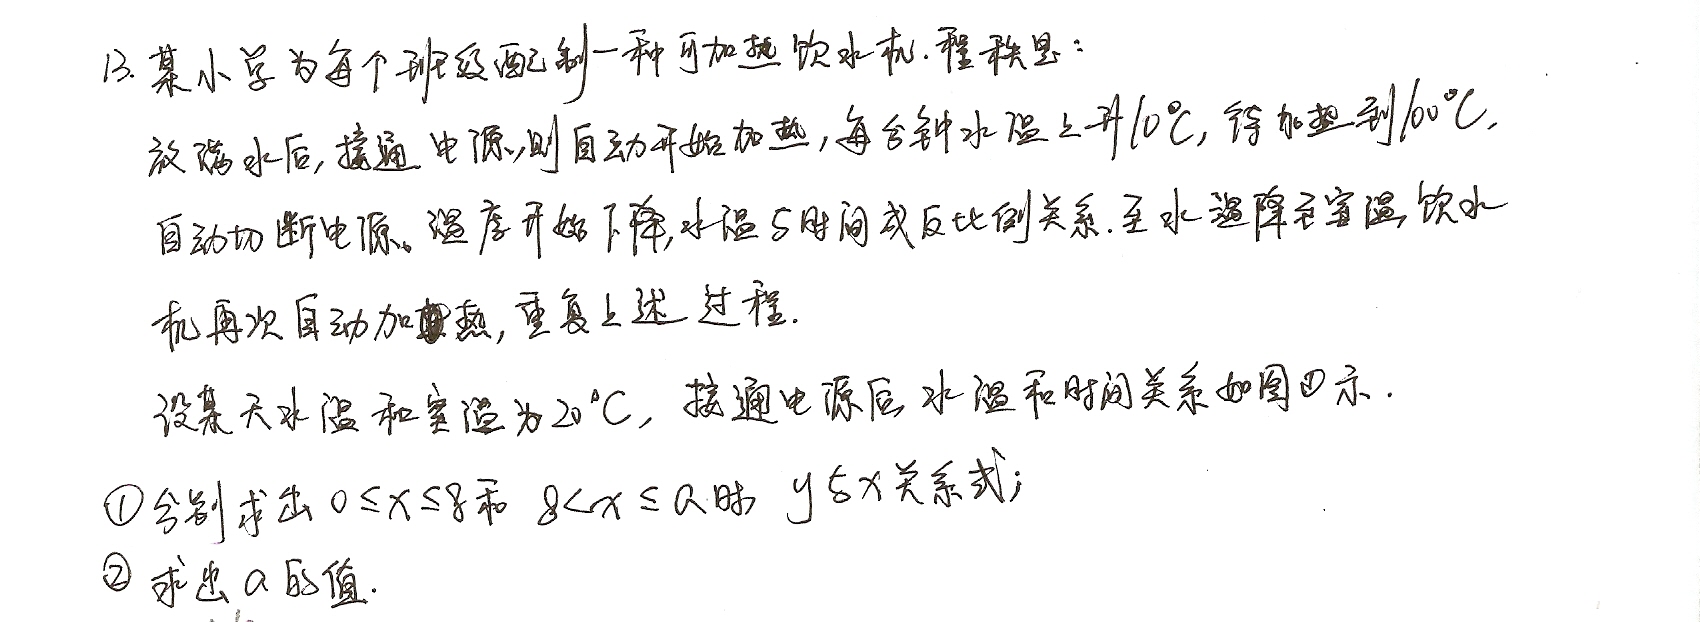 13.某小学为每个班级配制一种可加热饮水机.程秩是:
放满水后,接通电源,则自动开始加热,每分钟水温上升10°C,待加热到100°C,
自动切断电源。温度开始下降,水温与时间成反比例关系.至水温降至室温,饮水
机再次自动加热,重复上述过程.
设某天水温和室温为20°C,接通电源后,水温和时间关系如图①示.
①分别求出0≤x≤8和8<x≤a时,y与x关系式;
②求出a的值.